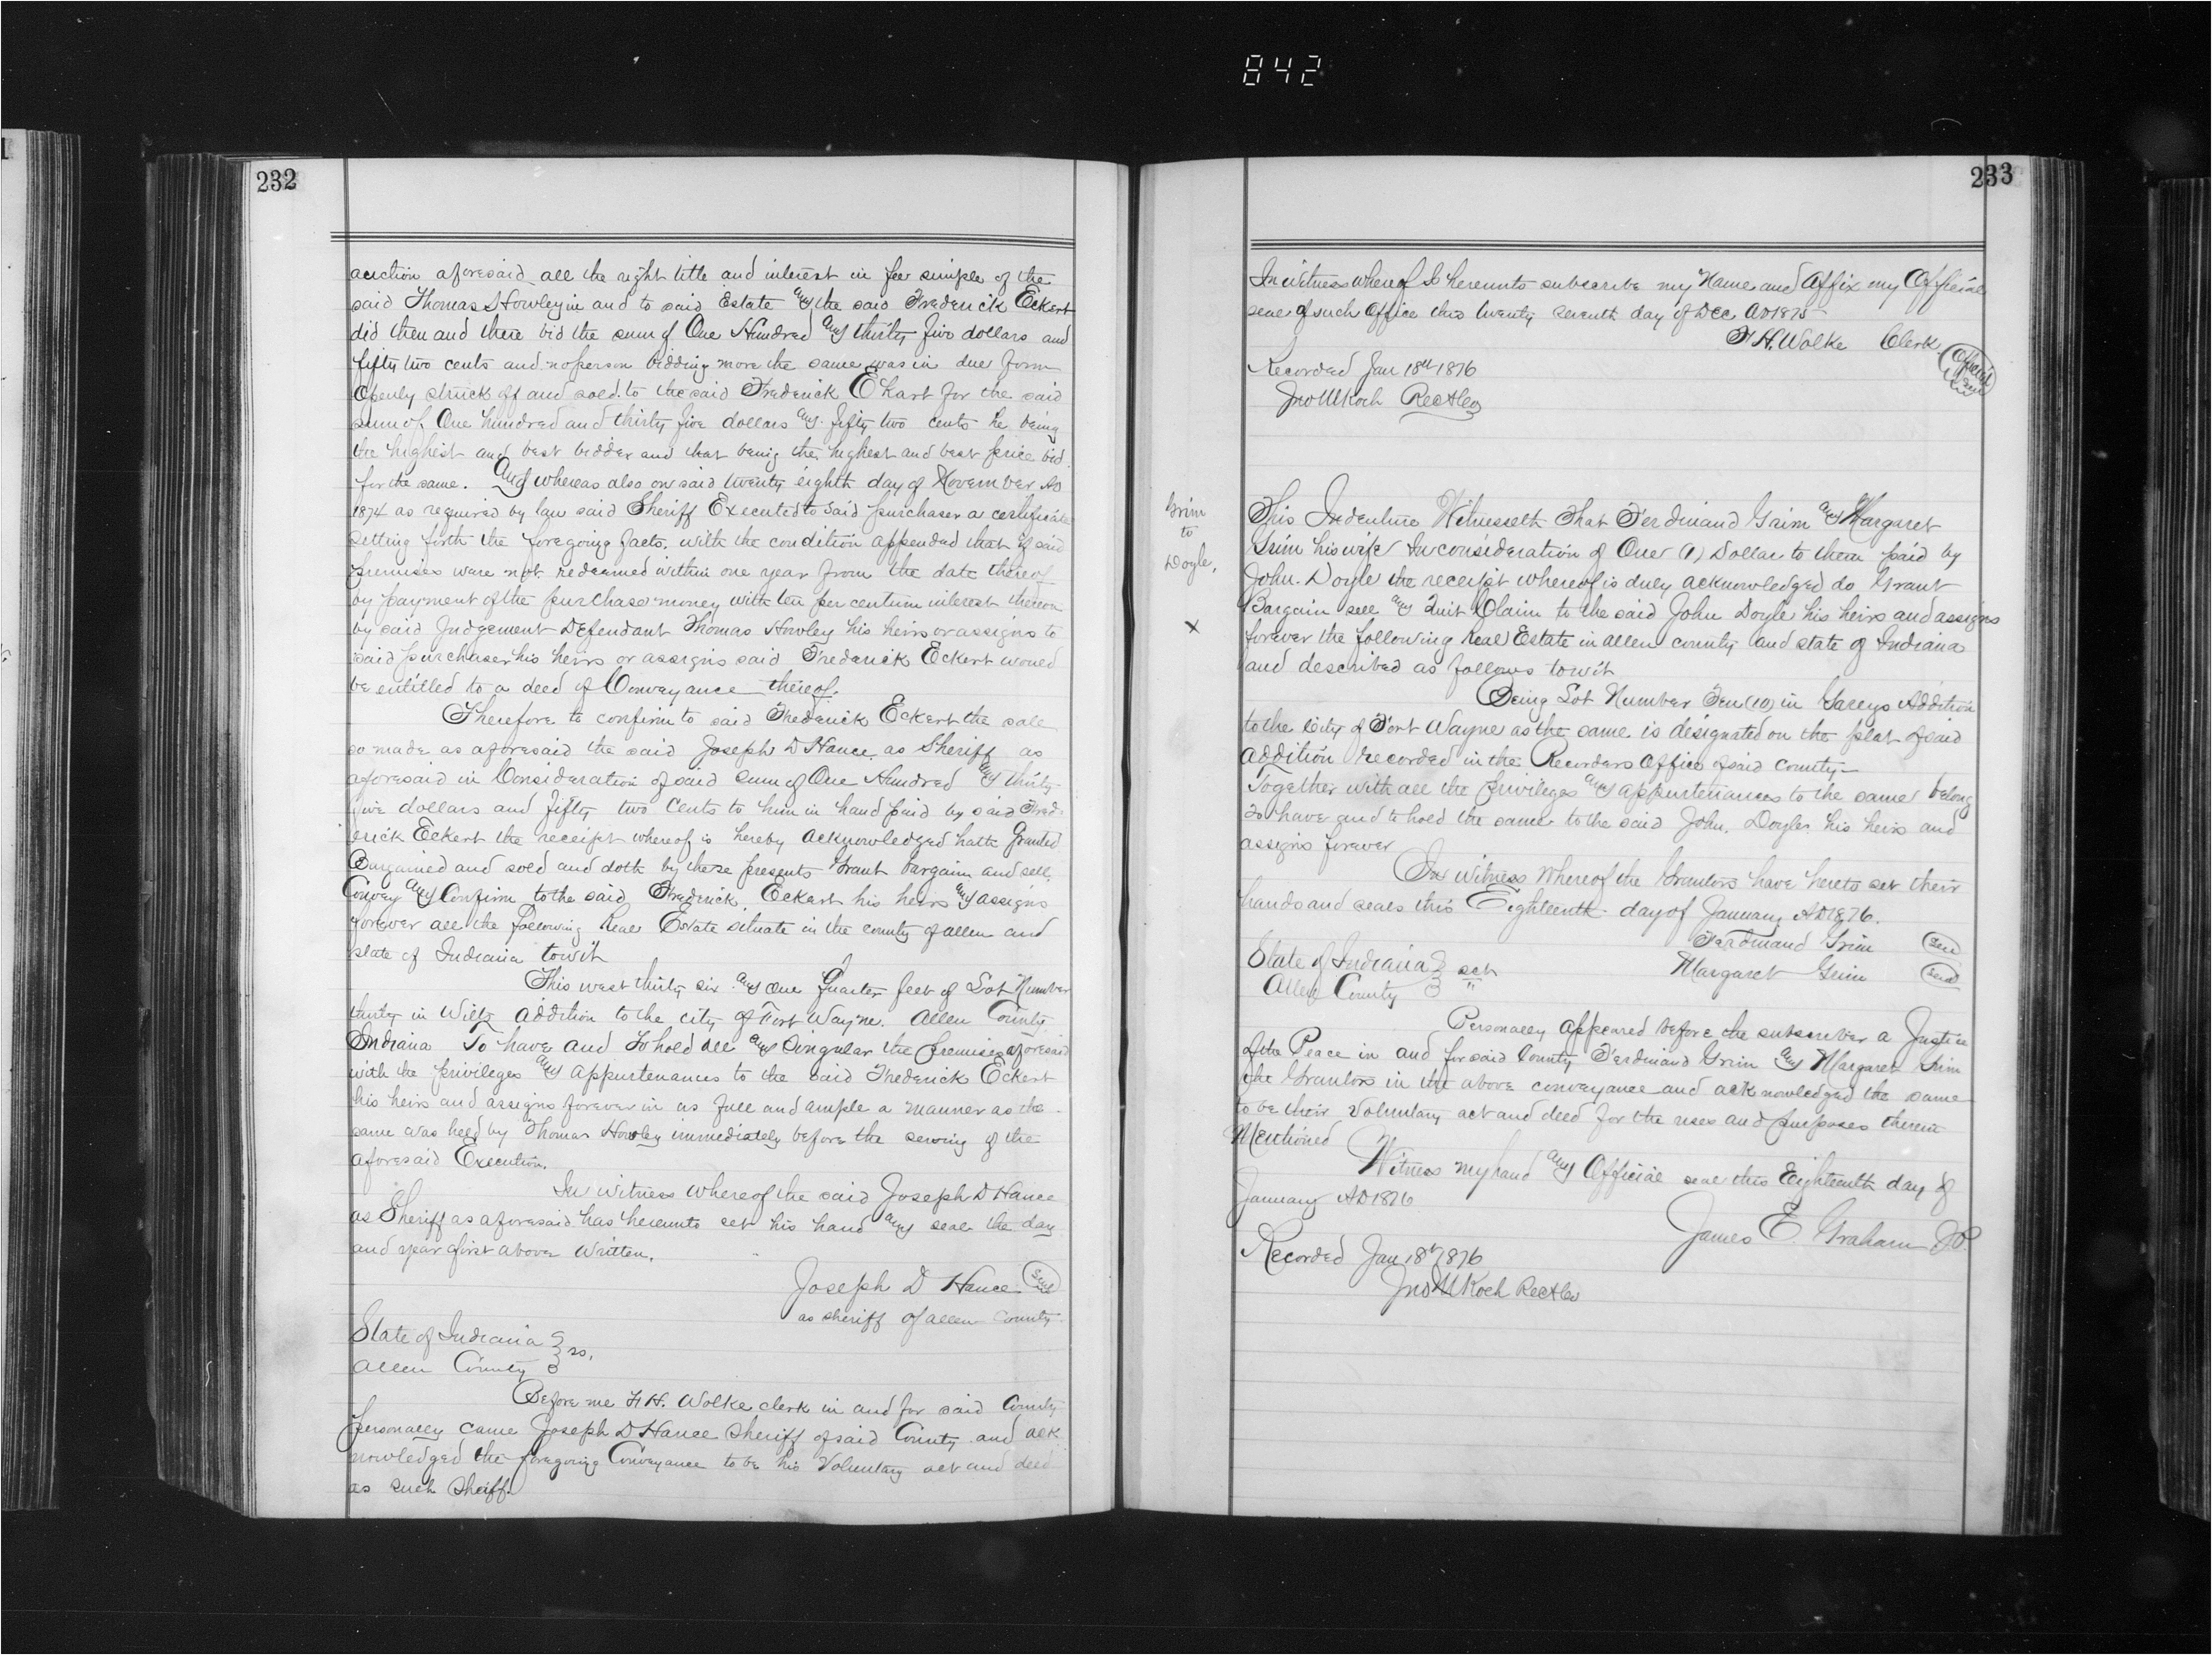 842
232
auction aforesaid all the right title and interest in fee simple of the
said Thomas Howley in and to said Estate and the said Frederick Eckert
did then and there bid the sum of One Hundred and thirty five dollars and
fifty two cents and no person bidding more the same was in due form
Openly struck off and sold to the said Frederick Ekart for the said
sum of One hundred and thirty five dollars and fifty two cents he being
the highest and best bidder and that being the highest and best price bid
for the same. And whereas also on said twenty eighth day of November AD
1874 as required by law said Sheriff Executed to said purchaser a certificate
setting forth the foregoing facts. with the condition appended that if said
premises were not redeemed within one year from the date thereof
by payment of the purchase money with ten per centum interest thereon
by said Judgement Defendant Thomas Howley his heirs or assigns to
said purchaser his heirs or assigns said Frederick Eckert would
be entitled to a deed of Conveyance thereof.
Therefore to confirm to said Frederick Eckert the sale
so made as aforesaid the said Joseph D Hance as Sheriff as
aforesaid in Consideration of said sum of One Hundred and thirty
five dollars and fifty two Cents to him in hand paid by said Fred-
erick Eckert the receipt whereof is hereby acknowledged hath Granted
Bargained and sold and doth by these presents Grant bargain and sell
Convey and Confirm to the said Frederick Eckert his heirs and assigns
forever all the following Real Estate situate in the county of allen and
state of Indiana towit
This west thirty six and one Quarter feet of Lot Number
thirty in Wiltz addition to the city of Fort Wayne. Allen County
Indiana To have and to hold all and Singular the premises aforesaid
with the privileges and appurtenances to the said Frederick Eckert
his heirs and assigns forever in as full and ample a manner as the
same was held by Thomas Howley immediately before the serving of the
aforesaid Execution.
In witness whereof the said Joseph D Hance
as Sheriff as aforesaid has hereunto set his hand and seal the day
and year first above written.
Joseph D Hance Seal
as sheriff of allen County
State of Indiana } ss.
Allen County }
Before me F H. Wolke clerk in and for said County
personally came Joseph D Hance Sheriff of said County and ack
nowledged the foregoing Conveyance to be his Voluntary act and deed
as such Sheiff.
233
In witness whereof I hereunto subscribe my Name and Affix my Official
seal of such Office this twenty seventh day of Dec AD 1875
F H. Wolke Clerk Official Seal
Recorded Jan 18th 1876
Jno M Koch Rec Alleo
Grim
to
Doyle.
X
This Indenture Witnesseth That Ferdinand Grim and Margaret
Grim his wife In consideration of One (1) Dollar to them paid by
John. Doyle the receipt whereof is duly acknowledged do Grant
Bargain sell and Quit Claim to the said John Doyle his heirs and assigns
forever the following Real Estate in allen county and state of Indiana
and described as follows towit
Being Lot Number Ten (10) in Gareys Addition
to the City of Fort Wayne as the same is designated on the plat of said
Addition recorded in the Recorders Office of said County—
Together with all the Privileges and appurtenances to the same belong
To have and to hold the same to the said John. Doyle his heirs and
assigns forever
In witness Whereof the Grantors have hereto set their
hands and seals this Eighteenth day of January AD 1876.
Ferdinand Grim Seal
State of Indiana } sct
Margaret Grim Seal
Allen County } "
Personally appeared before the subscriber a Justice
of the Peace in and for said County Ferdinand Grim and Margaret Grim
the Grantors in the above conveyance and acknowledged the same
to be their Voluntary act and deed for the uses and purposes therein
Mentioned
Witness my hand and Official seal this Eighteenth day of
January AD 1876
James E. Graham JP.
Recorded Jan 18th 1876
Jno M Koch Rec Alleo